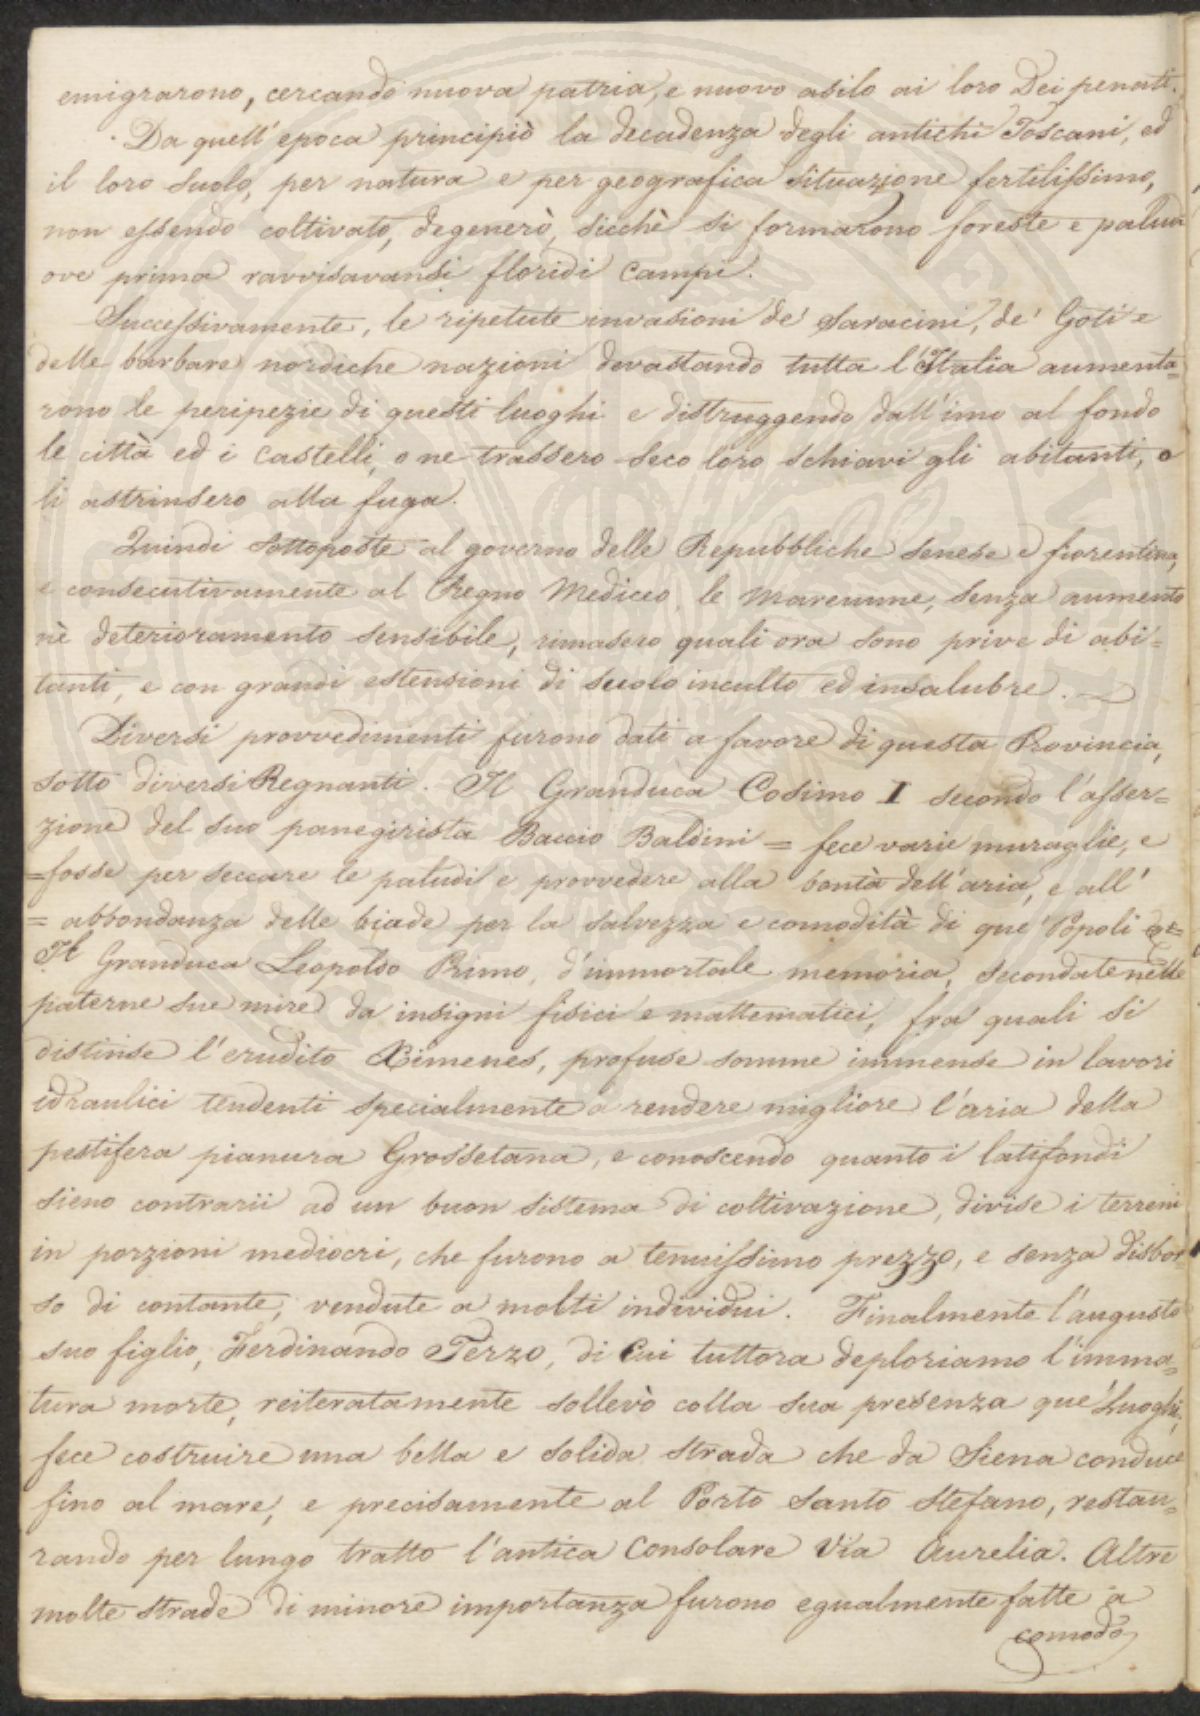 emigrarono, cercando nuova patria, e nuovo asilo ai loro Dei penati.
Da quell'epoca principiò la decadenza degli antichi Toscani, ed
il loro suolo, per natura e per geografica situazione fertilissimo,
non essendo coltivato, degenerò, sicchè si formarono foreste e paludi
ove prima ravvisavansi floridi campi.
Successivamente, le ripetute invasioni de' Saracini, de' Goti e
delle barbare nordiche nazioni devastando tutta l'Italia aumenta=
rono le peripezie di questi luoghi e distruggendo dall'imo al fondo
le città ed i castelli, o ne trassero seco loro schiavi gli abitanti, o
li astrinsero alla fuga.
Quindi sottoposte al governo delle Repubbliche senese e fiorentina,
e consecutivamente al Regno Mediceo, le Maremme, senza aumento
nè deterioramento sensibile, rimasero quali ora sono prive di abi=
tanti, e con grandi estensioni di suolo inculto ed insalubre.
Diversi provvedimenti furono dati a favore di questa Provincia,
sotto diversi Regnanti. Il Granduca Cosimo I secondo l'asser=
zione del suo panegirista Baccio Baldini = fece varie muraglie, e
=fosse per seccare le paludi e provvedere alla bontà dell'aria, e all'
= abbondanza delle biade per la salvezza e comodità di que' Popoli
Il Granduca Leopoldo Primo, d'immortale memoria, secondate nelle
paterne sue mire da insigni fisici e mattematici, fra quali si
distinse l'erudito Ximenes, profuse somme immense in lavori
idraulici tendenti specialmente a rendere migliore l'aria della
pestifera pianura Grossetana, e conoscendo quanto i latifondi
sieno contrarii ad un buon sistema di coltivazione, divise i terreni
in porzioni mediocri, che furono a tenuissimo prezzo, e senza disbor
so di contante, vendute a molti individui. Finalmente l'augusto
suo figlio, Ferdinando Terzo, di cui tuttora deploriamo l'imma=
tura morte, reiteratamente sollevò colla sua presenza que' Luoghi,
fece costruire una bella e solida strada che da Siena conduce
fino al mare, e precisamente al Porto Santo Stefano, restau=
rando per lungo tratto l'antica Consolare Via Aurelia. Altre
molte strade di minore importanza furono egualmente fatte a
comodo